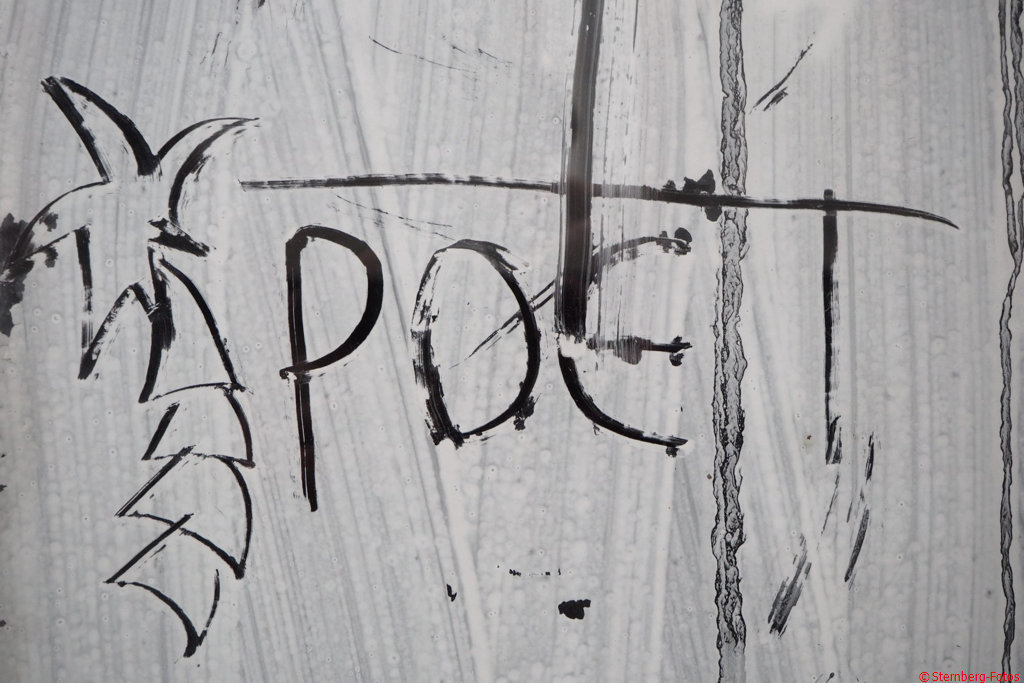 POET
© Sternberg-Fotos